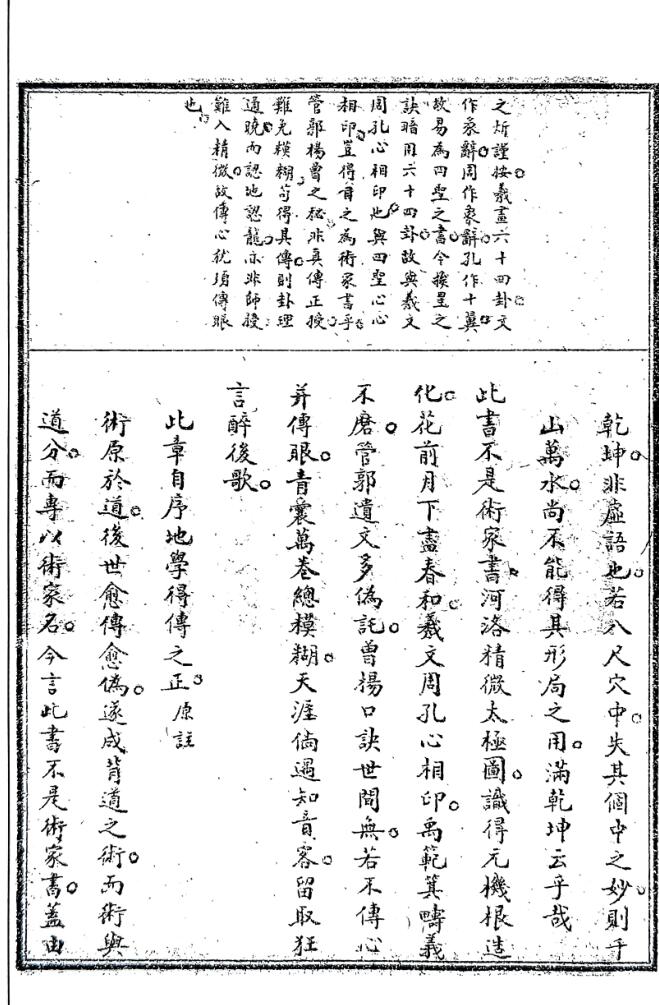 之斯謹按羲畫六十四卦文
作彖辭周作象辭孔作十翼
故易為四聖之書今撰星之
訣暗用六十四卦故與羲文
周孔心相印也與四聖心心
相印豈得目之為術家書乎
管郭楊曾之秘非真傳正授
難免模糊苟得其傳則卦理
通曉而認地認龍亦非師授
難入精微故傳心犹須傳眼
也
乾坤非虛語也若八尺穴中失其個中之妙則千
山萬水尚不能得其形局之用滿乾坤云乎哉
此書不是術家書河洛精微太極圖識得元機根造
化花前月下盡春和羲文周孔心相印禹範箕疇義
不磨管郭遺文多偽託曾楊口訣世間無若不傳心
并傳眼青囊萬卷總模糊天涯倘遇知音客留取狂
言醉後歌
此章自序地學得傳之正原註
術原於道後世愈傳愈偽遂成背道之術而術與
道分而專以術家名今言此書不是術家書蓋由